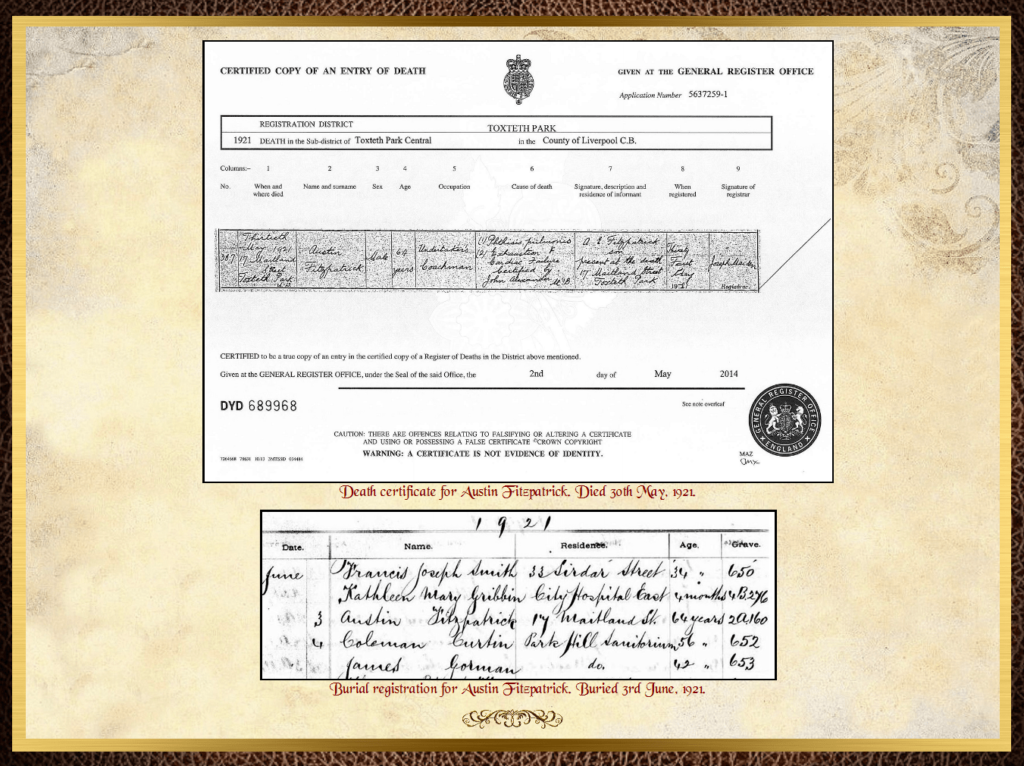 CERTIFIED COPY OF AN ENTRY OF DEATH
GIVEN AT THE GENERAL REGISTER OFFICE
Application Number 5637259-1
REGISTRATION DISTRICT TOXTETH PARK
1921 DEATH in the Sub-district of Toxteth Park Central in the County of Liverpool C.B.
Columns:- 1 2 3 4 5 6 7 8 9
No. When and where died Name and surname Sex Age Occupation Cause of death Signature, description and residence of informant When registered Signature of registrar
Thirtieth May 1921 17 Maitland Street Toxteth Park
Austin Fitzpatrick
Male
64 years
Undertakers Coachman
(1) Phthisis pulmonis (2) Exhaustion & Cardiac Failure Certified by John Alexander M.B.
A. E. Fitzpatrick son present at the death 17 Maitland Street Toxteth Park
Thirty First May 1921
Registrar
CERTIFIED to be a true copy of an entry in the certified copy of a Register of Deaths in the District above mentioned.
Given at the GENERAL REGISTER OFFICE, under the Seal of the said Office, the 2nd day of May 2014
DYD 689968
See note overleaf
CAUTION: THERE ARE OFFENCES RELATING TO FALSIFYING OR ALTERING A CERTIFICATE
AND USING OR POSSESSING A FALSE CERTIFICATE ©CROWN COPYRIGHT
WARNING: A CERTIFICATE IS NOT EVIDENCE OF IDENTITY.
GENERAL REGISTER OFFICE ENGLAND
MAZ
Death certificate for Austin Fitzpatrick. Died 30th May, 1921.
1921
Date. Name. Residence. Age. Grave.
June Francis Joseph Smith 33 Sirdar Street 34 " 650
Kathleen Mary Gribbin City Hospital East 4 months 4B.276
3 Austin Fitzpatrick 17 Maitland St. 64 years 2A160
4 Coleman Curtin Park Hill Sanitorium 56 " 652
James Gorman do. 42 " 653
Burial registration for Austin Fitzpatrick. Buried 3rd June, 1921.